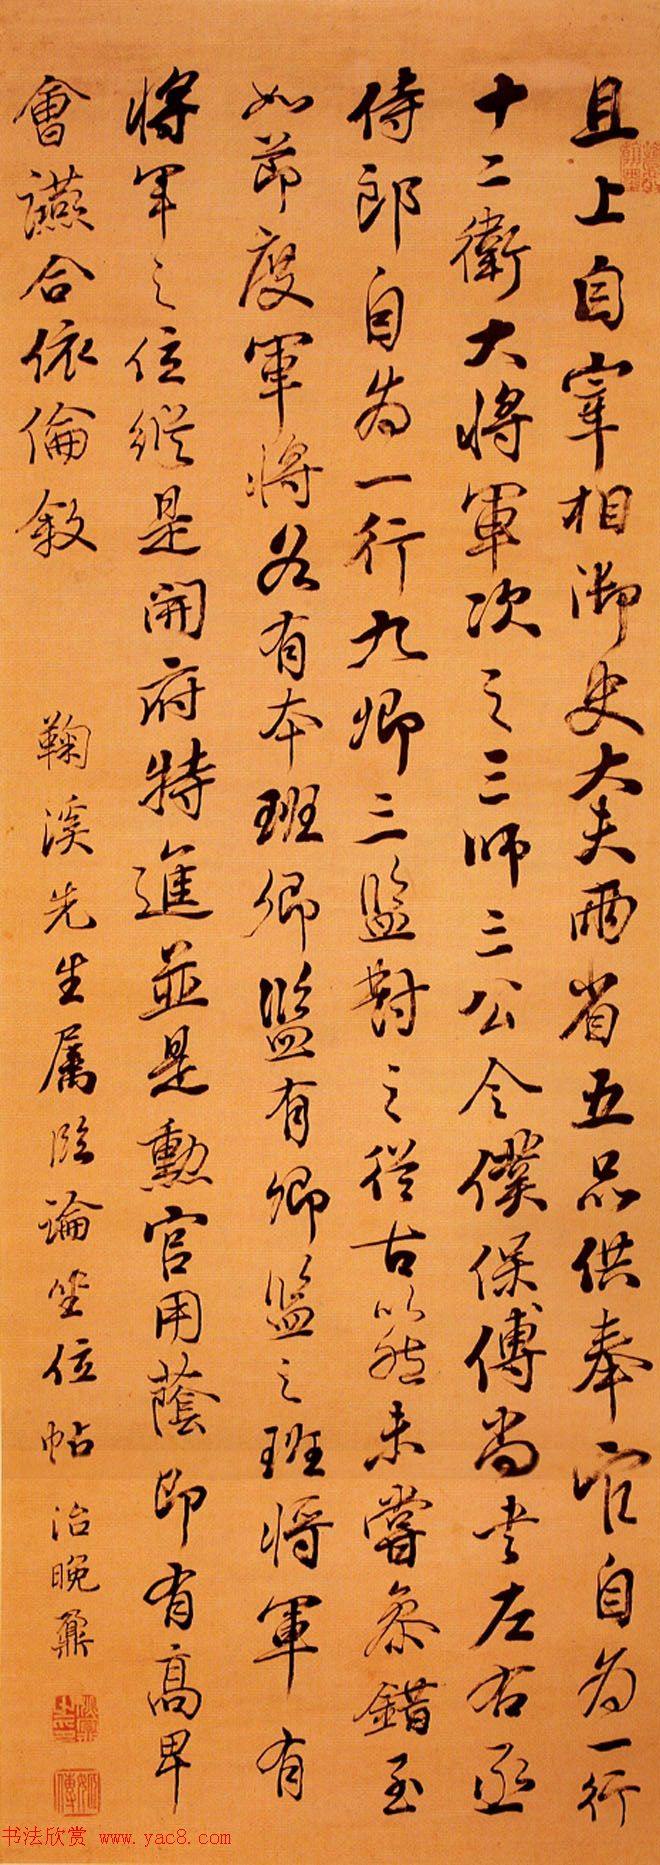 且上自宰相御史大夫兩省五品供奉官自為一行
十二衛大將軍次之三師三公令僕保傅尚書左右丞
侍郎自為一行九卿三監對之從古以然未嘗參錯至
如節度軍將各有本班卿監有卿監之班將軍有
將軍之位縱是開府特進並是勳官用蔭即有高卑
會讌合依倫敘 鞠溪先生屬臨論坐位帖 治晚鼐
姬傳
书法欣赏 www.yac8.com